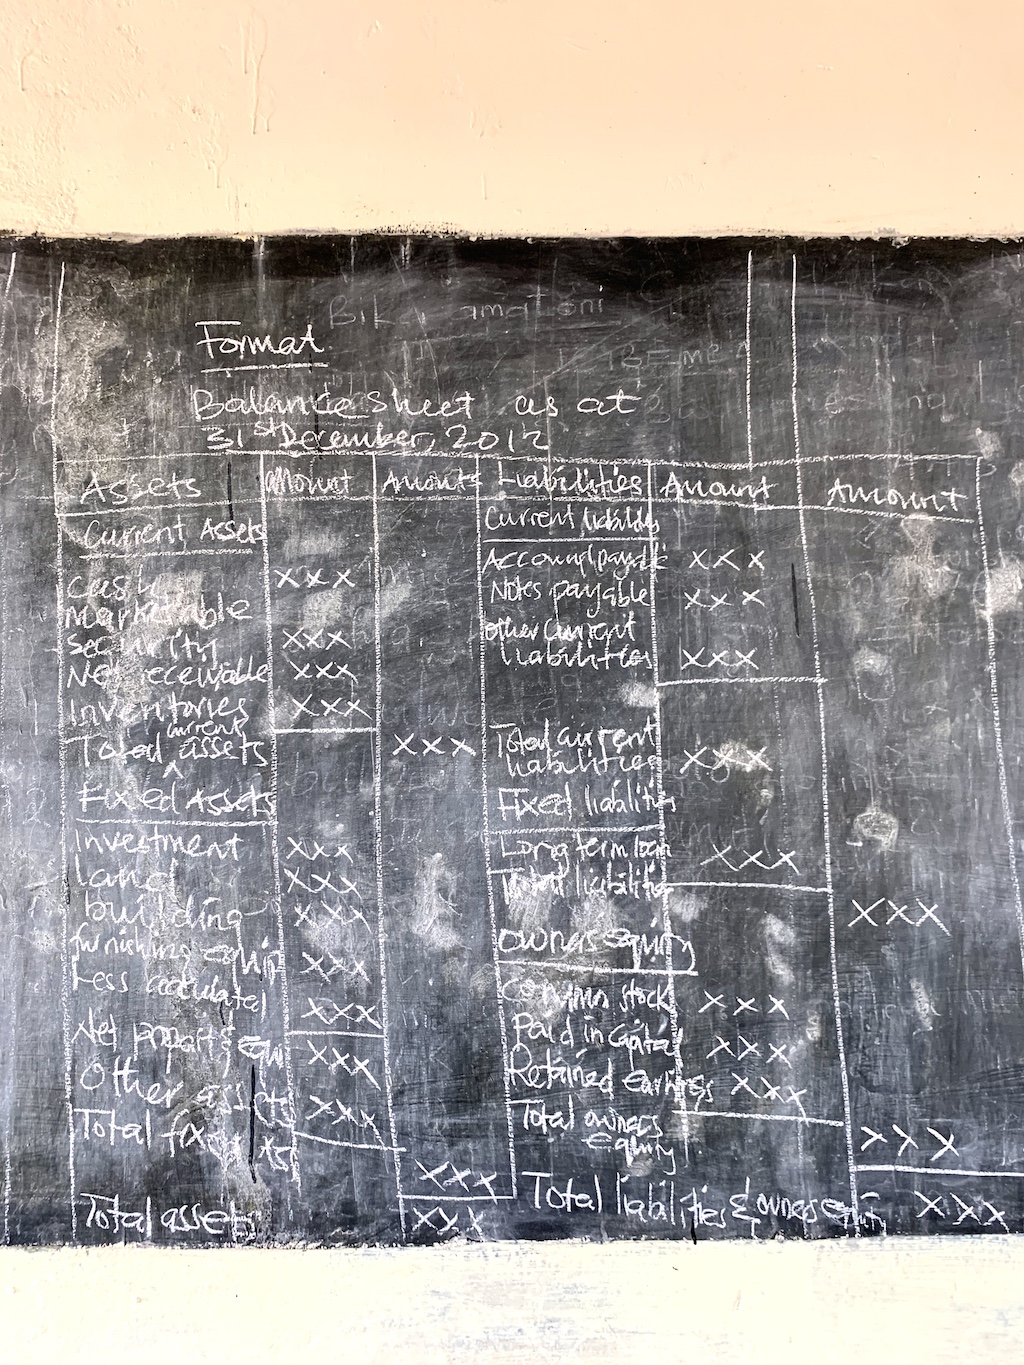 Format
Balance sheet as at
31st December, 2012
Assets amount Amounts Liabilities Amount Amount
Current Assets
cash xxx
Marketable
security xxx
Net receivable xxx
Inventories xxx
Total current assets xxx
Fixed Assets
Investment xxx
Land xxx
building xxx
furnishing equip xxx
Less xxx
Net & xxx
Other assets xxx
Total xxx
Total assets xxx
Current liability
Account payable xxx
Notes payable xxx
Other Current
liabilities xxx
Total current
liabilities xxx
Fixed liabilities
Long term loan xxx
Total liabilities xxx
owners equity
Common stock xxx
Paid in capital xxx
Retained earnings xxx
Total owners
equity xxx
Total liabilities & owners equity xxx